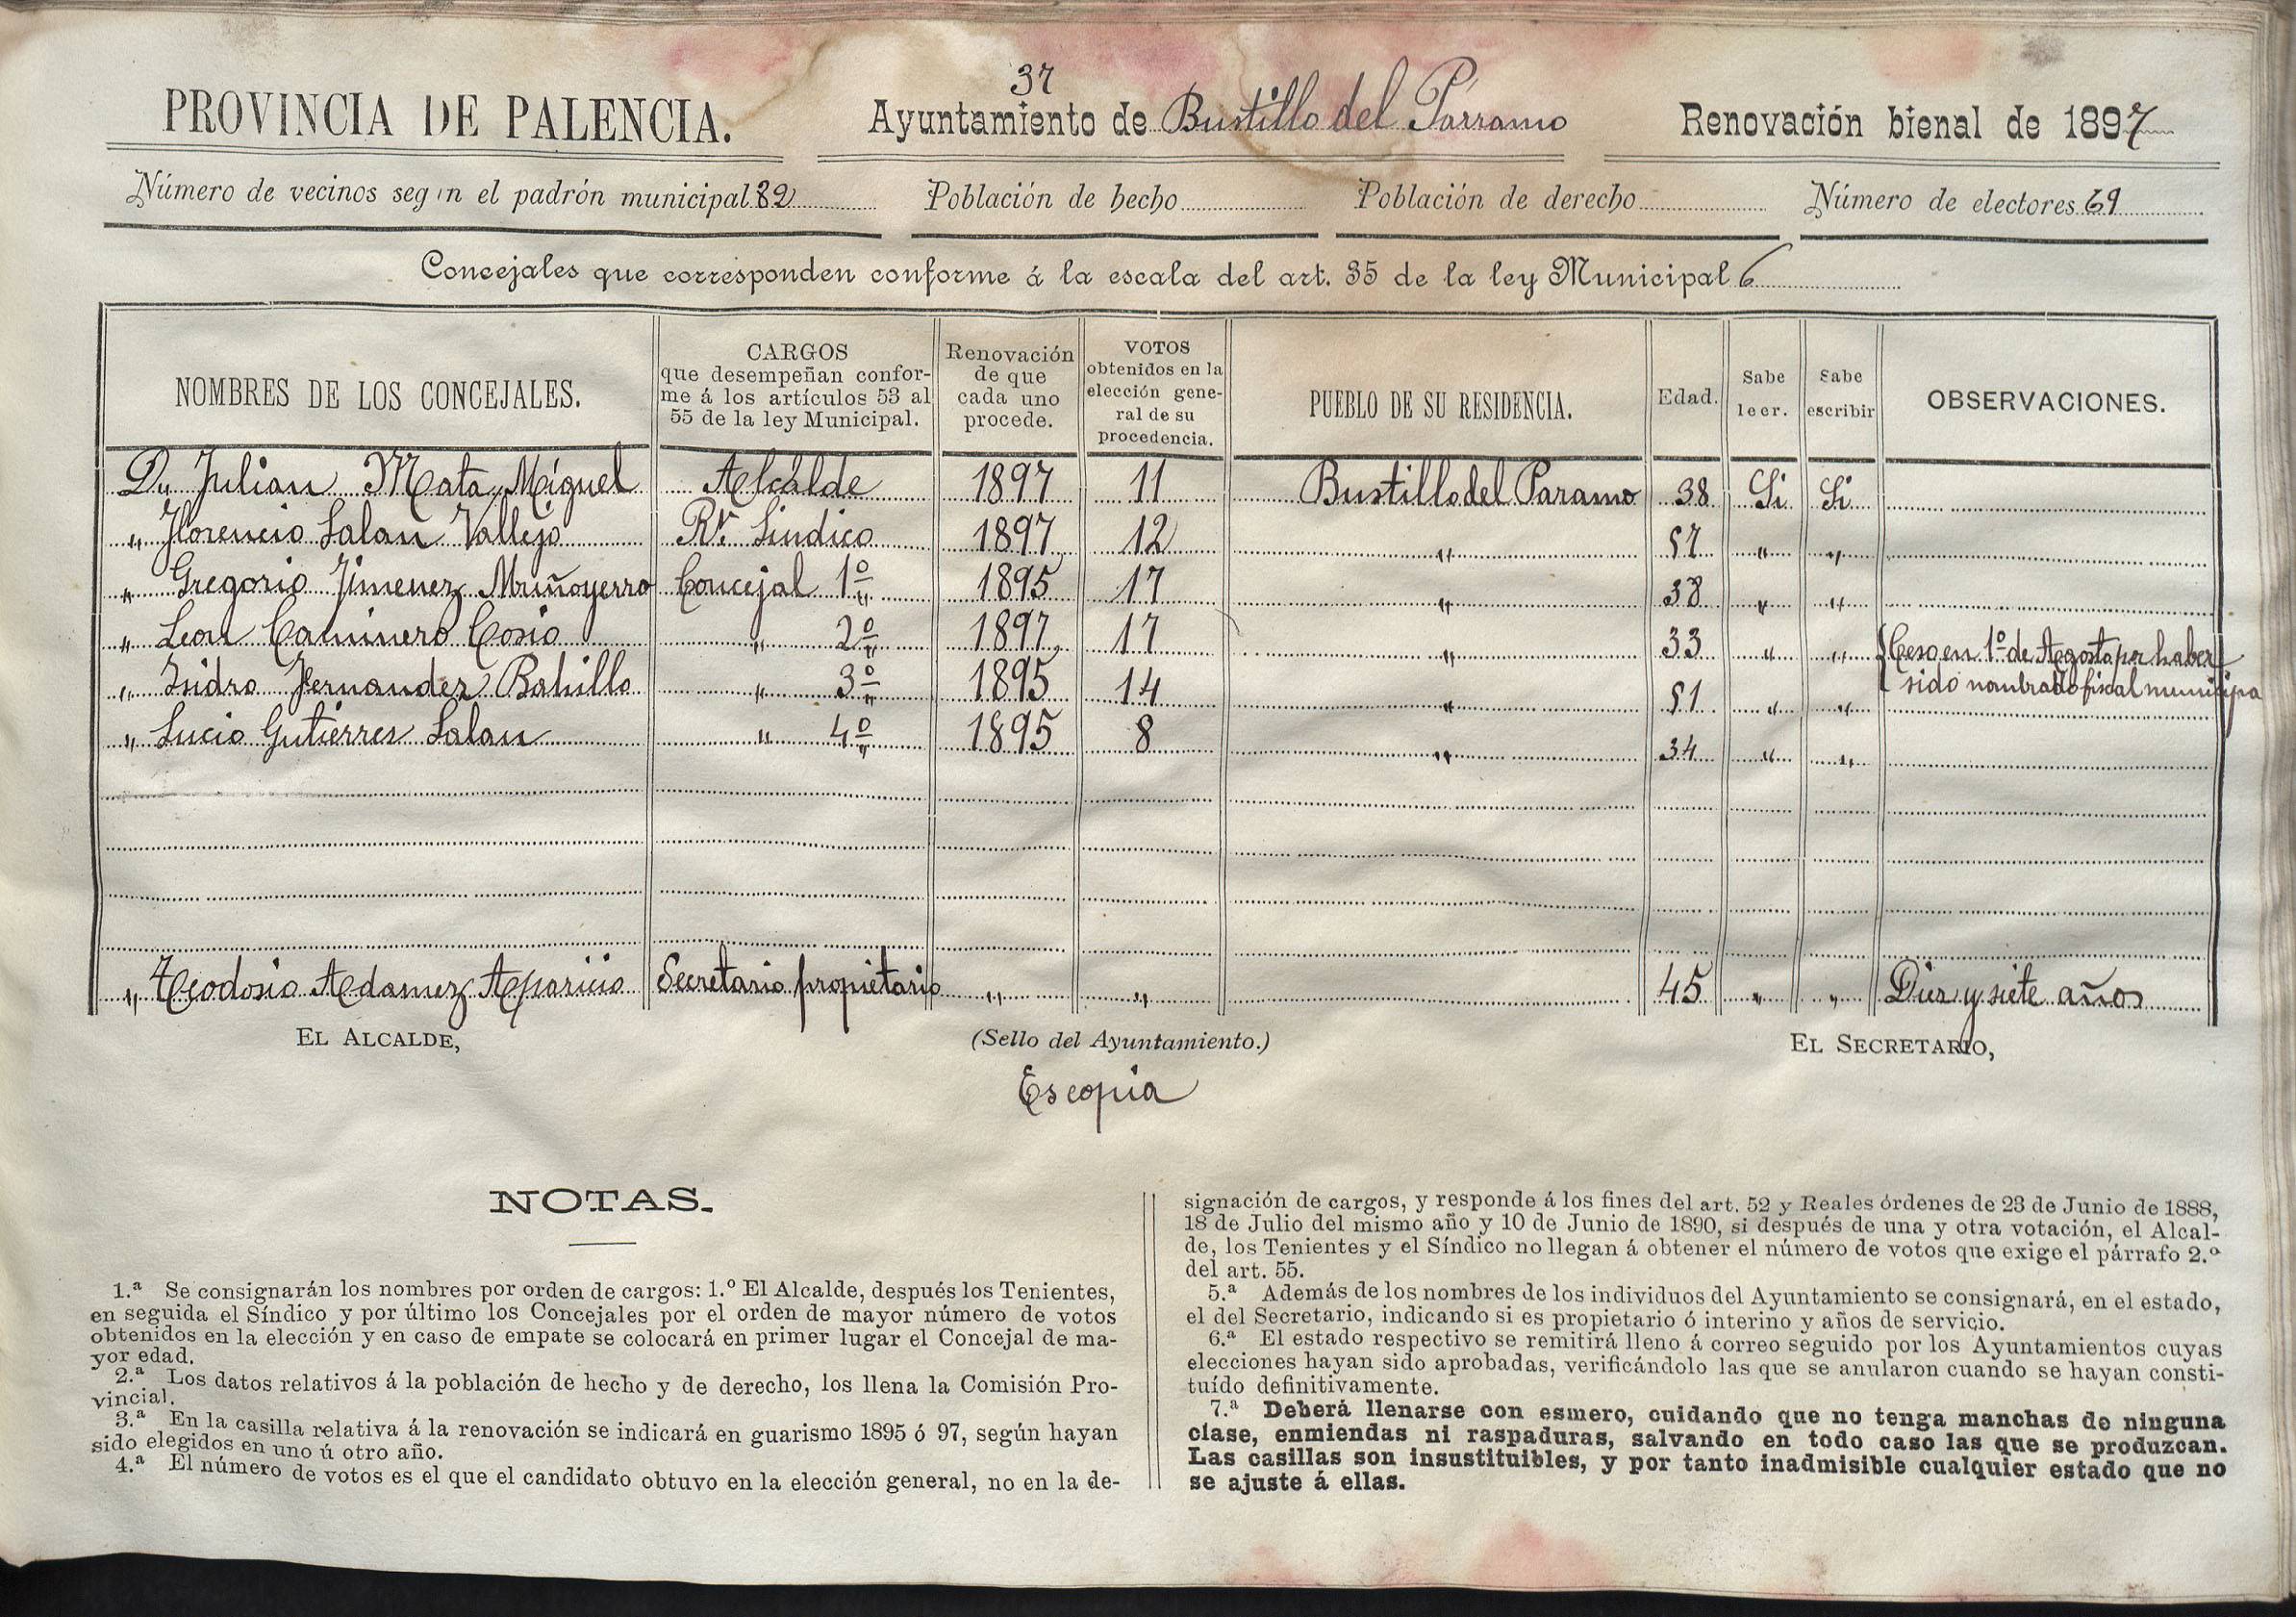 37
PROVINCIA DE PALENCIA. Ayuntamiento de Bustillo del Párramo Renovación bienal de 1897
Número de vecinos según el padrón municipal 82 Población de hecho Población de derecho Número de electores 69
Concejales que corresponden conforme á la escala del art. 35 de la ley Municipal 6
NOMBRES DE LOS CONCEJALES. CARGOS que desempeñan conforme á los artículos 53 al 55 de la ley Municipal. Renovación de que cada uno procede. VOTOS obtenidos en la elección general de su procedencia. PUEBLO DE SU RESIDENCIA. Edad. Sabe leer. Sabe escribir OBSERVACIONES.
D.n Julian Mata Miguel Alcalde 1897 11 Bustillo del Paramo 38 Si Si
" Florencio Salan Vallejo Rr. Sindico 1897 12 " 57 " "
" Gregorio Jimenez Muñoyerro Concejal 1º 1895 17 " 38 " "
" Leon Caminero Cosio " 2º 1897 17 " 33 " " Ceso en 1º de Agosto por haber
sido nombrado fiscal municipal
" Isidro Fernandez Bahillo " 3º 1895 14 " 51 " "
" Lucio Gutierres Salan " 4º 1895 8 " 34 " "
" Teodosio Adamez Aparicio Secretario propietario " " 45 " " Diez y siete años
EL ALCALDE, (Sello del Ayuntamiento.) EL SECRETARIO,
Es copia
NOTAS.
1.ª Se consignarán los nombres por orden de cargos: 1.º El Alcalde, después los Tenientes,
en seguida el Síndico y por último los Concejales por el orden de mayor número de votos
obtenidos en la elección y en caso de empate se colocará en primer lugar el Concejal de ma-
yor edad.
2.ª Los datos relativos á la población de hecho y de derecho, los llena la Comisión Pro-
vincial.
3.ª En la casilla relativa á la renovación se indicará en guarismo 1895 ó 97, según hayan
sido elegidos en uno ú otro año.
4.ª El número de votos es el que el candidato obtuvo en la elección general, no en la de-
signación de cargos, y responde á los fines del art. 52 y Reales órdenes de 23 de Junio de 1888,
18 de Julio del mismo año y 10 de Junio de 1890, si después de una y otra votación, el Alcal-
de, los Tenientes y el Síndico no llegan á obtener el número de votos que exige el párrafo 2.º
del art. 55.
5.ª Además de los nombres de los individuos del Ayuntamiento se consignará, en el estado,
el del Secretario, indicando si es propietario ó interino y años de servicio.
6.ª El estado respectivo se remitirá lleno á correo seguido por los Ayuntamientos cuyas
elecciones hayan sido aprobadas, verificándolo las que se anularon cuando se hayan consti-
tuído definitivamente.
7.ª Deberá llenarse con esmero, cuidando que no tenga manchas de ninguna
clase, enmiendas ni raspaduras, salvando en todo caso las que se produzcan.
Las casillas son insustituibles, y por tanto inadmisible cualquier estado que no
se ajuste á ellas.